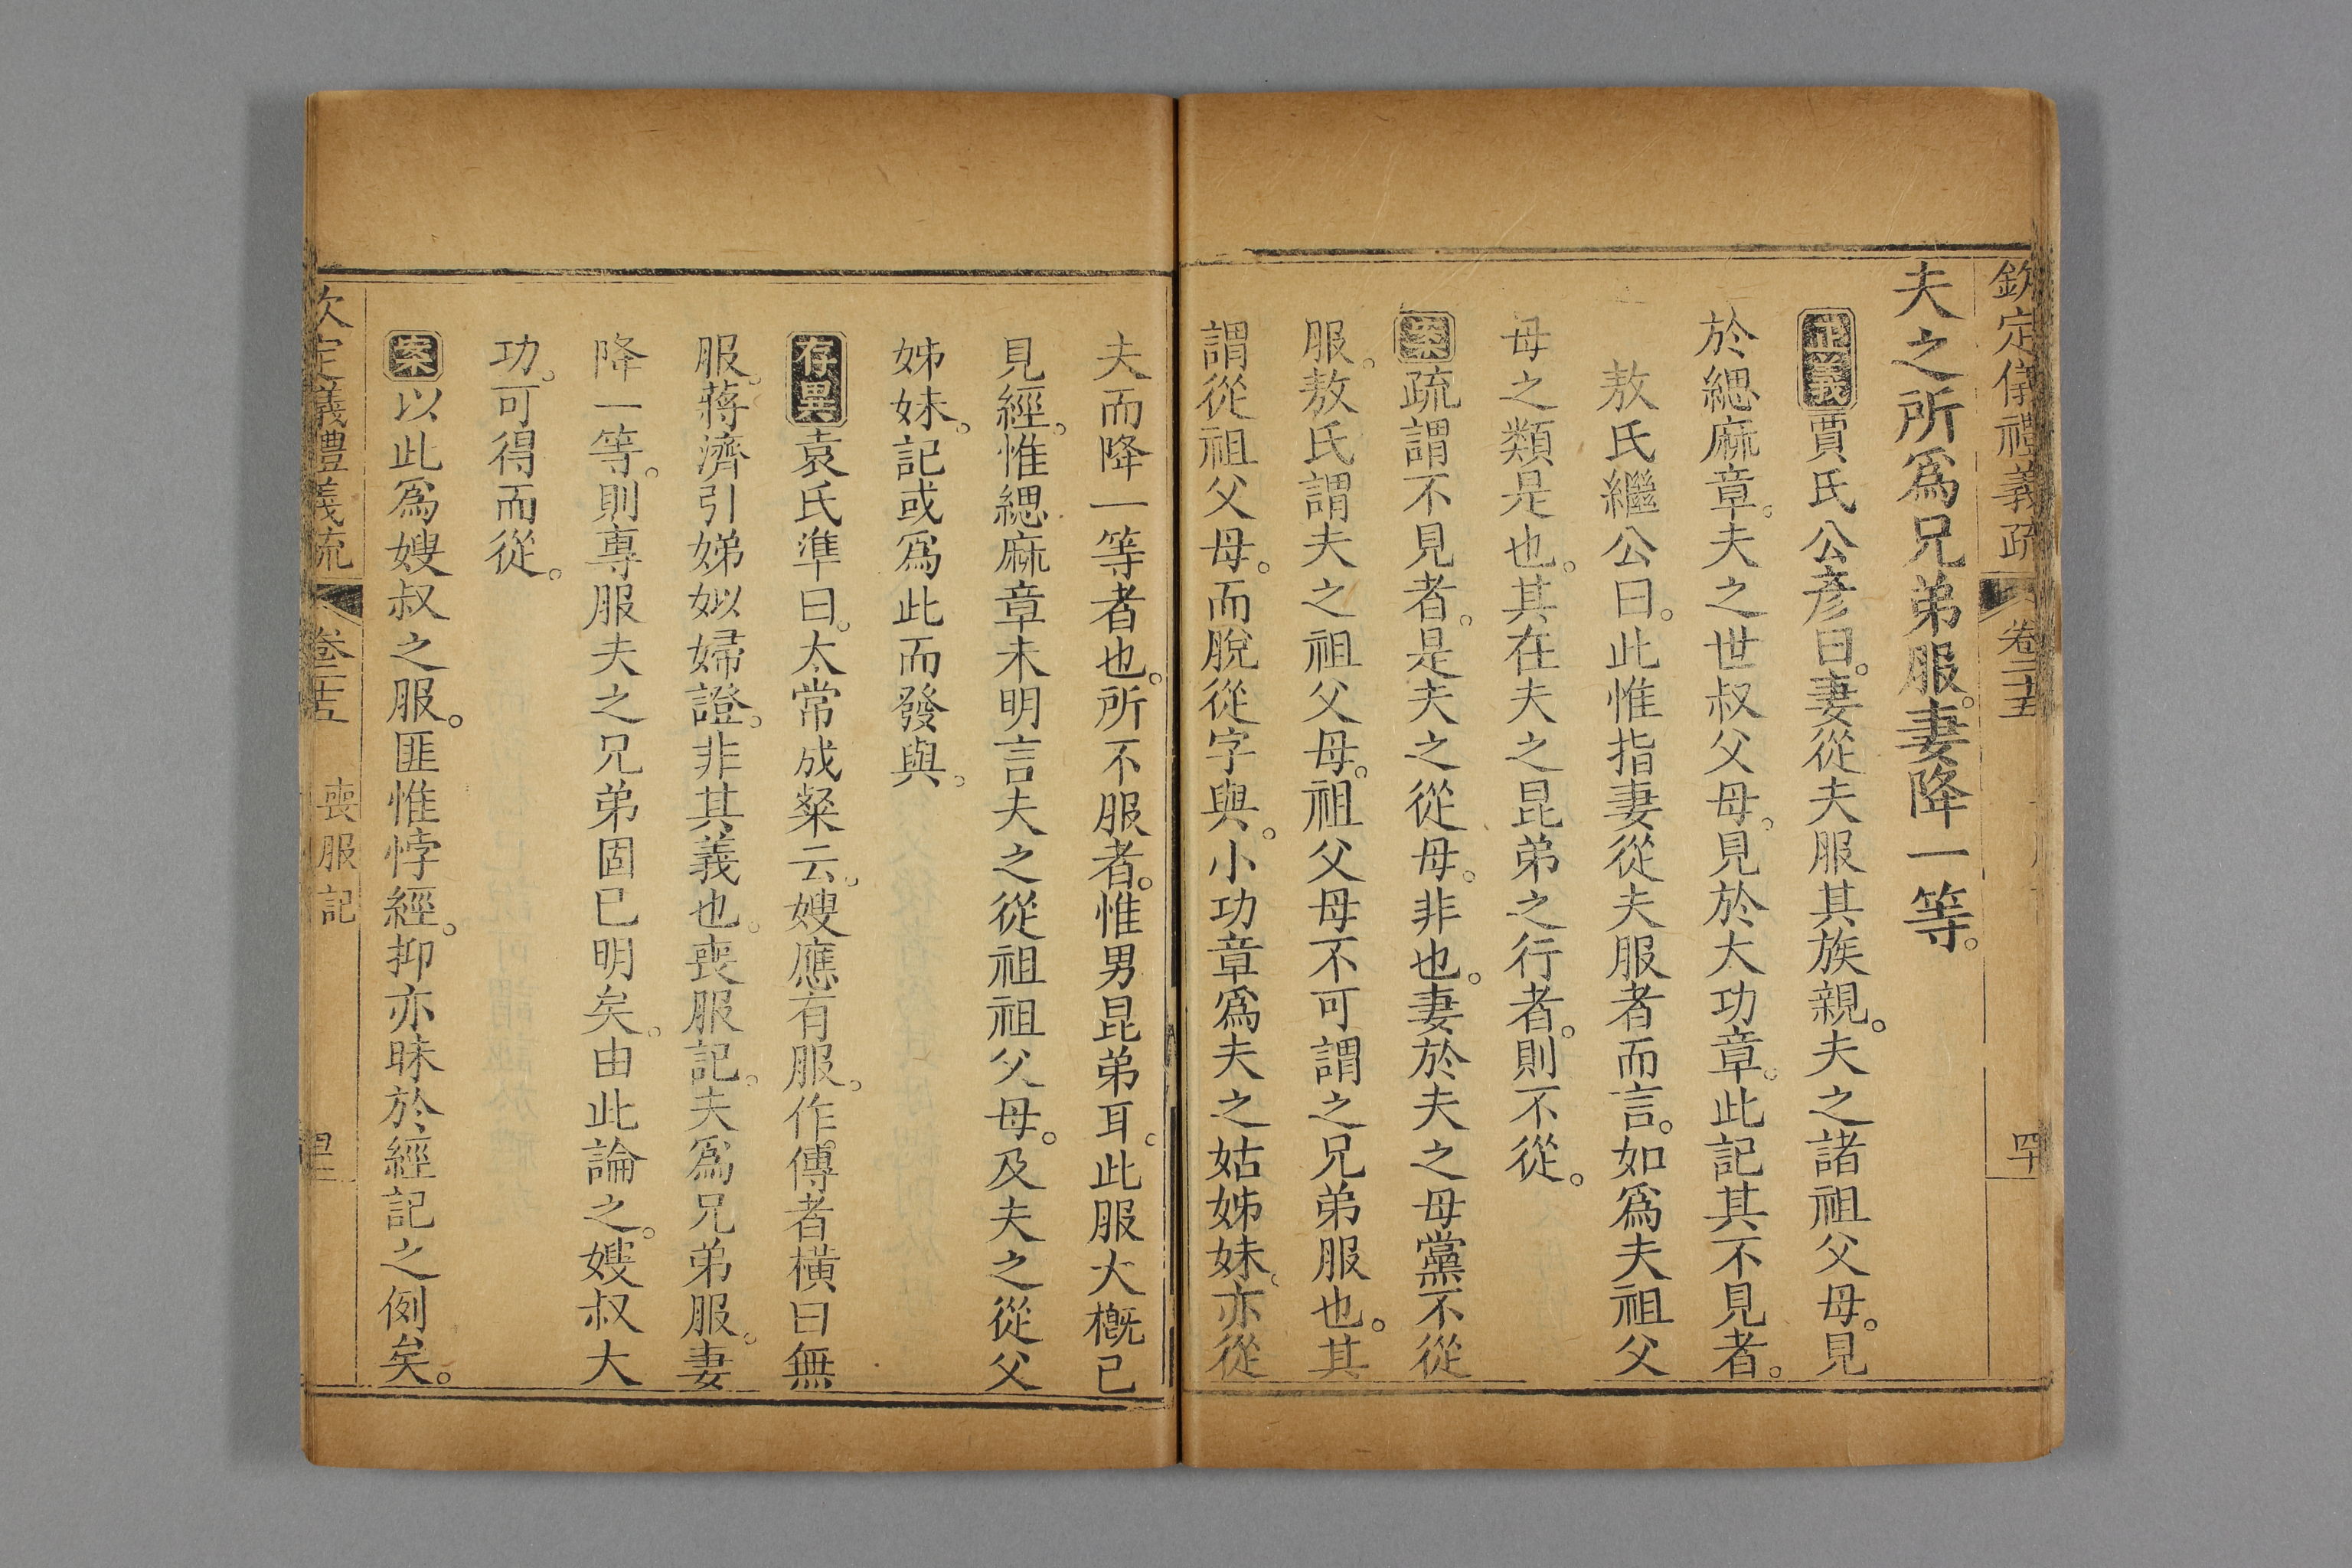 欽定儀禮義疏 卷二十五 四十
夫之所爲兄弟服。妻降一等。
正義賈氏公彥曰。妻從夫服其族親。夫之諸祖父母。見
於緦麻章。夫之世叔父母。見於大功章。此記其不見者。
敖氏繼公曰。此惟指妻從夫服者而言。如爲夫祖父
母之類是也。其在夫之昆弟之行者。則不從。
案疏謂不見者。是夫之從母。非也。妻於夫之母黨不從
服。敖氏謂夫之祖父母。祖父母不可謂之兄弟服也。其
謂從祖父母。而脫從字與。小功章爲夫之姑姊妹。亦從
夫而降一等者也。所不服者。惟男昆弟耳。此服大概已
見經。惟緦麻章未明言夫之從祖祖父母。及夫之從父
姊妹。記或爲此而發與。
存異袁氏準曰。太常成粲云。嫂應有服。作傳者橫曰無
服。蔣濟引娣姒婦證。非其義也。喪服記。夫爲兄弟服。妻
降一等。則專服夫之兄弟固已明矣。由此論之。嫂叔大
功。可得而從。
案以此爲嫂叔之服。匪惟悖經。抑亦昧於經記之例矣。
欽定義禮義疏 卷二十五 喪服記